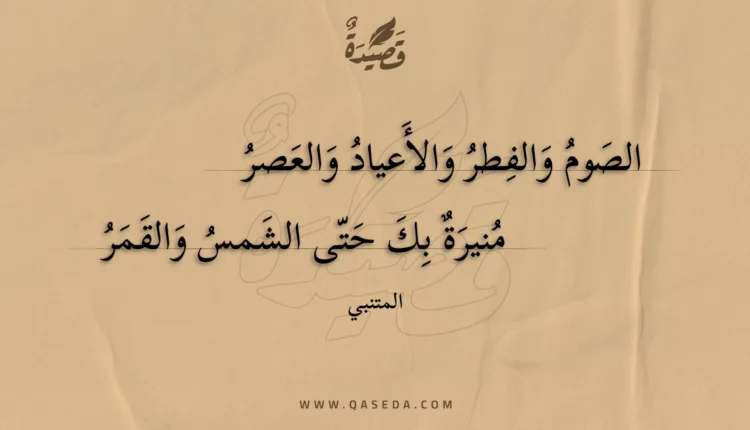 قَصِيدَةٌ
الصَومُ وَالفِطرُ وَالأَعيادُ وَالعَصرُ
مُنيرَةٌ بِكَ حَتّى الشَمسُ وَالقَمَرُ
المتنبي
WWW.QASEDA.COM